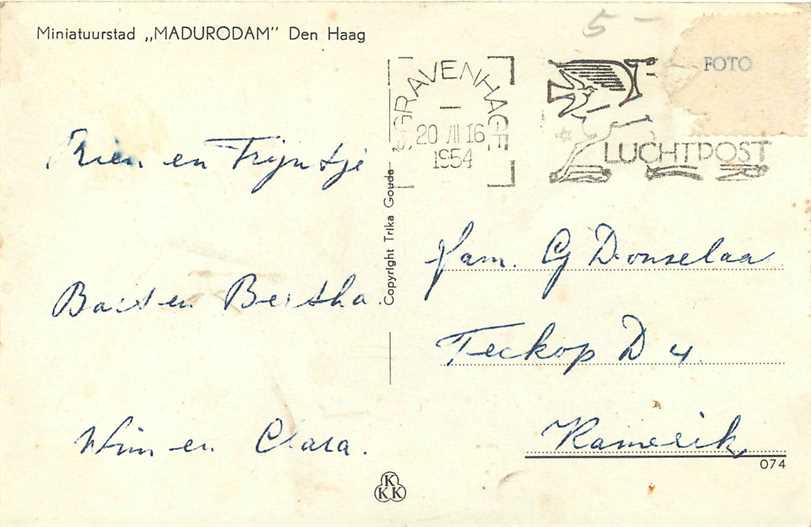 Miniatuurstad „MADURODAM" Den Haag
5-
FOTO
'S GRAVENHAGE
20 VII 16
1954
LUCHTPOST
Rien en Trijntje
Bart en Bertha.
Wim en Clara.
Copyright Trika Gouda
fam. G Donselaar
Teckop D 4
Kamerik
074
K
KK